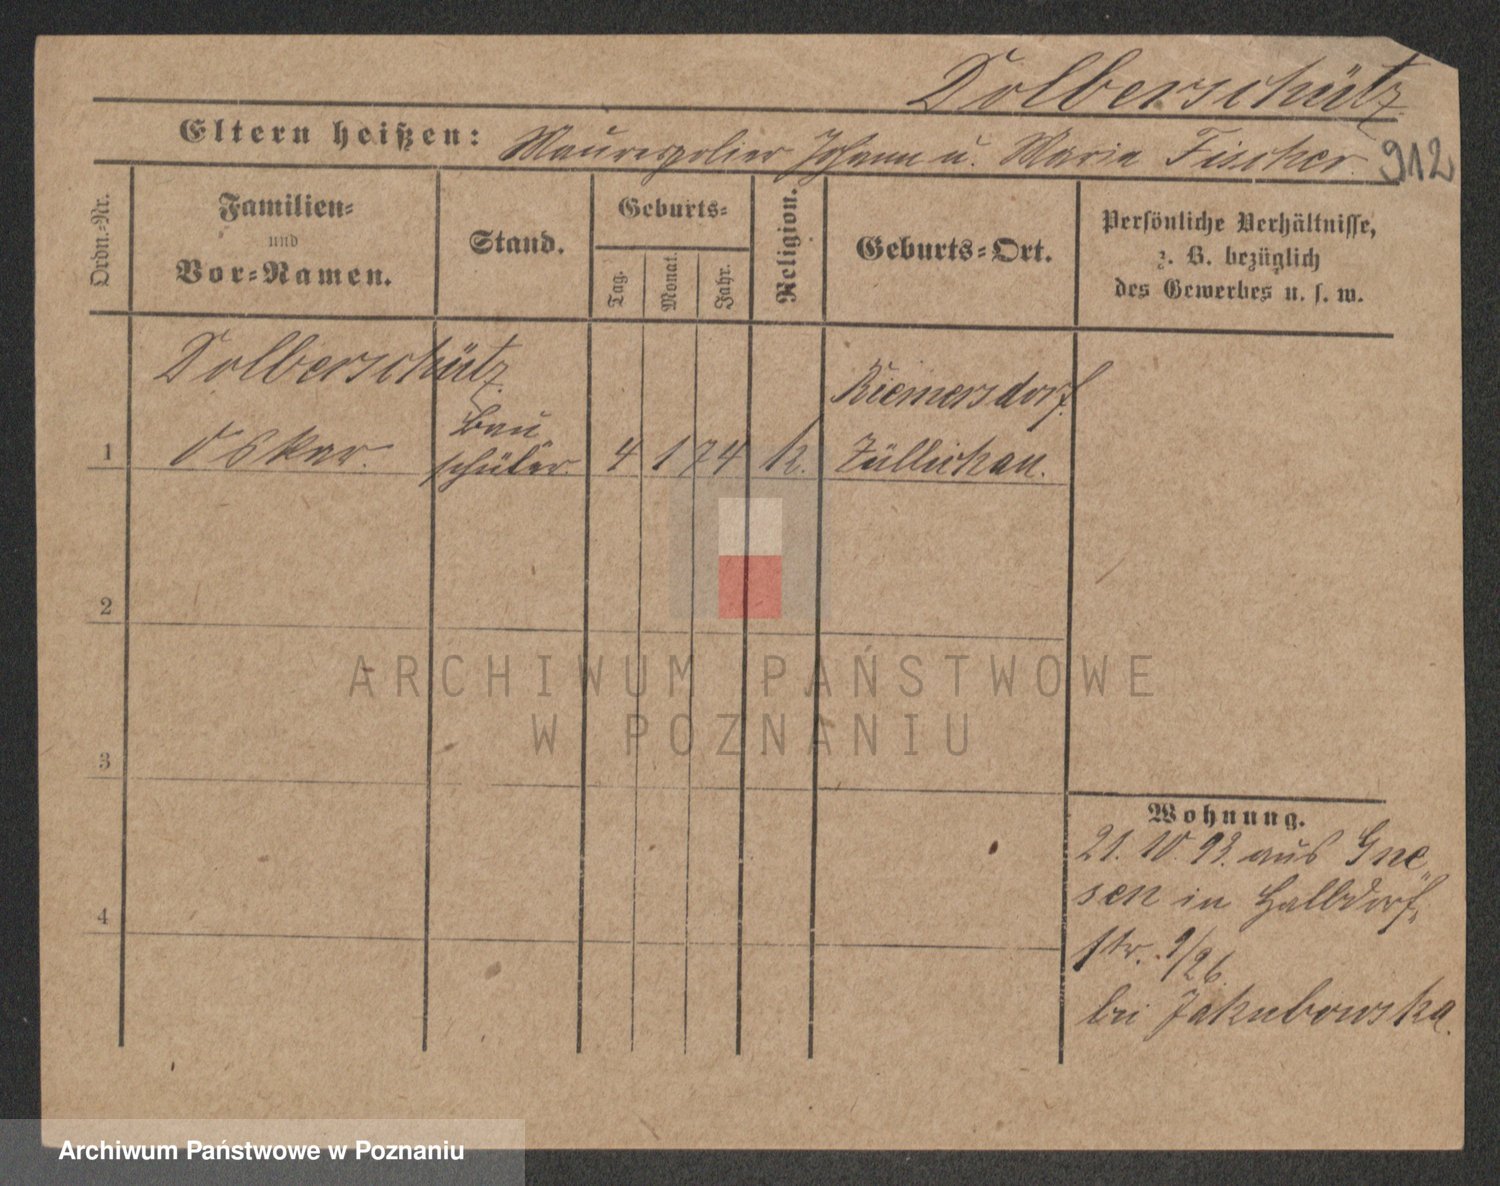 Dolberschütz
Eltern heißen: Maurerpolier Johann u. Maria Fischer.
912
Ordn.-Nr.
Familien-
und
Vor-Namen.
Stand.
Geburts-
Tag.
Monat.
Jahr.
Religion.
Geburts-Ort.
Persönliche Verhältnisse,
z. B. bezüglich
des Gewerbes u. s. w.
Dolberschütz.
1 Oskar.
Bau
schüler.
4 1 74 k.
Riemersdorf.
Züllichau.
2
3
4
Wohnung.
21.10.93. aus Gne
sen in Halbdorf
str. 9/26.
bei Jakubowska.
ARCHIWUM PAŃSTWOWE
W POZNANIU
Archiwum Państwowe w Poznaniu